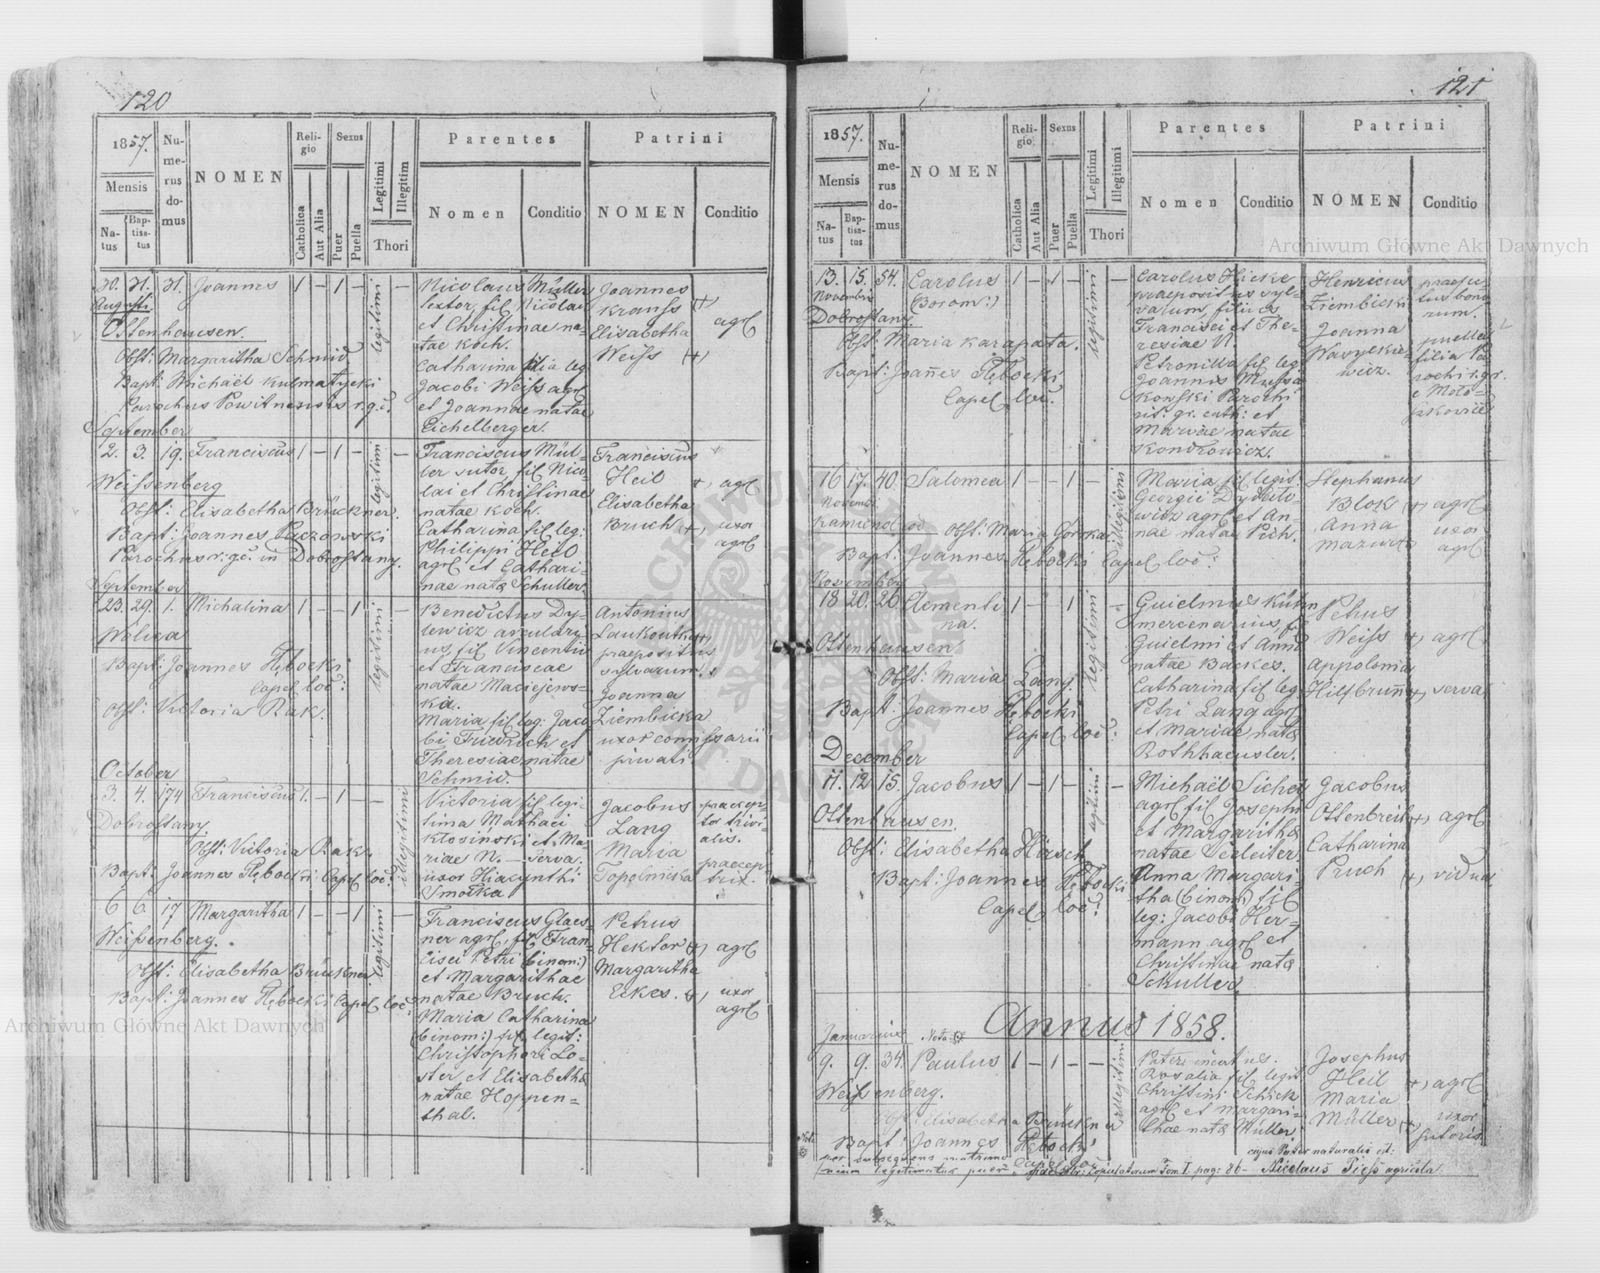 120
1857.
Mensis
Na-
tus
Bap-
tisa-
tus
Nu-
me-
rus
do-
mus
NOMEN
Reli-
gio
Catholica
Aut Alia
Sexus
Puer
Puella
Legitimi
Illegitimi
Thori
Parentes
Nomen
Conditio
Patrini
NOMEN
Conditio
30. 31. 31. Joannes 1 – 1 – legitimi –
Augusti
Ottenhausen.
Obst: Margaritha Schmid
Bapt: Michaël Kulmatycki
Parochus r. g. c.
Nicolaus Müller
textor, fil Nicolai
et Christinae na-
tae Koch.
Catharina filia leg
Jacobi Weiss agrl
et Joannae natae
Eichelberger.
Joannes
Krauss
Elisabetha
Weiss
agrl
September
2. 3. 19. Franciscus 1 – 1 – legitimi –
Weissenberg
Obst: Elisabetha Brückner.
Bapt: Joannes Paczowski
Parochus r. gc. in Dobrostany.
Franciscus Mül-
ler sutor, fil Nico-
lai et Christinae
natae Koch.
Catharina fil leg:
Philippi Heil
agrl et Cathari-
nae nata Schuller.
Franciscus
Heil
Elisabetha
Bruch
agrl
uxor
agrl
September
23. 29. 1. Michalina 1 – – 1 legitimi –
Wólica
Bapt: Joannes Hębocki
Capel loc:
Obst: Victoria Rak.
Benedictus Dy-
lewicz arculari-
us, fil Vincentii
et Franciscae
natae Maciejews-
ka.
Maria fil leg: Jaco
bi Friedrich et
Theresiae natae
Schmid.
Antonius
praepositus
sylvarum
Joanna
Ziembicka
uxor comissarii
privati
October
3. 4. 174 Franciscus 1. – 1 – – illegitimi
Dobrostany
Obst: Victoria Rak.
Bapt: Joannes Hębocki Capel loc:
Victoria fil legi-
tima Mathaei
Klosinski et Ma-
riae N. – Serva.
uxor Hiacynthi
Smolka
Jacobus
Lang
Maria
Topelnicka
praecep-
tor trivi-
alis.
praecep
trix.
6 6 17 Margaritha 1 – – 1 legitimi –
Weissenberg.
Obst: Elisabetha Brückner
Bapt: Joannes Hębocki Capel loc:
Franciscus Glaes-
ner agrl, fil Fran-
cisci Petri (binom:)
et Margarithae
natae Bruch.
Maria Catharina
(binom:) fil legit:
Christophori Lo-
ster et Elisabetha
natae Hoppen-
thal.
Petrus
Hektor
Margaritha
Eckes.
agrl
uxor
agrl
121
1857.
Mensis
Na-
tus
Bap-
tisa-
tus
Nu-
me-
rus
do-
mus
NOMEN
Reli-
gio
Catholica
Aut Alia
Sexus
Puer
Puella
Legitimi
Illegitimi
Thori
Parentes
Nomen
Conditio
Patrini
NOMEN
Conditio
13. 15. 54. Carolus 1 – 1 – legitimi –
Novembris (Borom:)
Dobrostany
Obst: Maria Karapata.
Bapt: Joañes Hębocki
Capel loc:
Carolus Hicke
praepositus syl-
varum, filius
Francisci et The-
resiae N.
Petronilla fil leg
Joannis
Parochi
rit: gr. cath: et
Mariae natae
Kondrowicz.
Henricus
Ziembicki
Joanna
Wasylkie-
wicz.
praefec
tus bono
rum.
puella
filia Pa
rochi r. gr.
16 17. 40. Salomea 1 – – 1 – illegitimi
Novembr
Obst: Maria Gorska
Bapt: Joannes Hębocki Capel loc:
Maria fil legit
Georgii Dydulo
wicz agrl et An
nae natae Pich.
Stephanus
Block
Anna
Mazur
agrl
uxor
agrl
November
18 20. 26 Clementi 1 – – 1 legitimi –
na.
Ottenhausen
Obst: Maria Lang.
Bapt: Joannes Hębocki
Capel loc:
Guielmus Kühn
mercenarius, fil
Guielmi et Anna
natae Backes.
Catharina fil leg
Petri Lang agrl
et Mariae nata
Rothhaeusler.
Petrus
Weiss
Appolonia
Hilfbrunn
agrl
serva
December
11. 12 15. Jacobus 1 – 1 – legitimi –
Ottenhausen
Obst: Elisabetha Hirsch
Bapt: Joannes Hębocki
Capel loc:
Michaël Sichel
agrl fil Josephi
et Margaritha
natae Verleiter.
Anna Margari-
tha (binom:) fil
leg: Jacobi Her-
mann agrl et
Christinae nata
Schuller.
Jacobus
Ottenbreit
Catharina
Pruch
agrl
vidua
Annus 1858.
Januarius Nota
9. 9. 34. Paulus 1 – 1 – – illegitimi
Weissenberg.
Obst: Elisabetha Brückner
Bapt: Joannes Hębocki
Capel loc:
Rosalia fil legit
Christini Schick
agrl et margari-
thae nata Müller.
Josephus
Heil
Maria
Müller
agrl
uxor
sutoris
cujus Pater naturalis est:
Nota
per subsequens matrimo
nium legitimatus puer Copulatorum Tom I, pag: 86 – Nicolaus Piess agricola
Archiwum Główne Akt Dawnych
Archiwum Główne Akt Dawnych